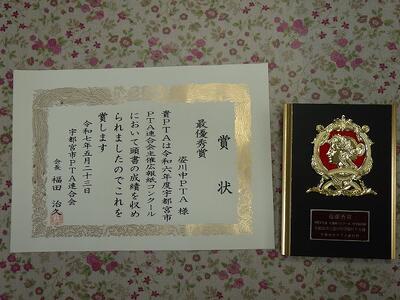 賞状
最優秀賞
姿川中PTA 様
貴PTAは令和六年度宇都宮市
PTA連合会主催広報紙コンクール
において頭書の成績を収め
られましたのでこれを
賞します
令和七年五月二十三日
宇都宮市PTA連合会
会長 福田 治久
最優秀賞